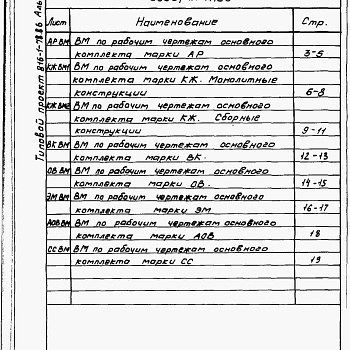 Типовой проект 816-1-78.86 Аль
Лист Наименование Стр.
АР ВМ ВМ по рабочим чертежам основного
комплекта марки АР 3-5
КЖ ВМ1 ВМ по рабочим чертежам основного
комплекта марки КЖ. Монолитные
конструкции 6-8
КЖ ВМ2 ВМ по рабочим чертежам основного
комплекта марки КЖ. Сборные
конструкции 9-11
ВК ВМ ВМ по рабочим чертежам основного
комплекта марки ВК. 12-13
ОВ ВМ ВМ по рабочим чертежам основного
комплекта марки ОВ. 14-15
ЭМ ВМ ВМ по рабочим чертежам основного
комплекта марки ЭМ 16-17
АОВ ВМ ВМ по рабочим чертежам основного
комплекта марки АОВ 18
СС ВМ ВМ по рабочим чертежам основного
комплекта марки СС 19